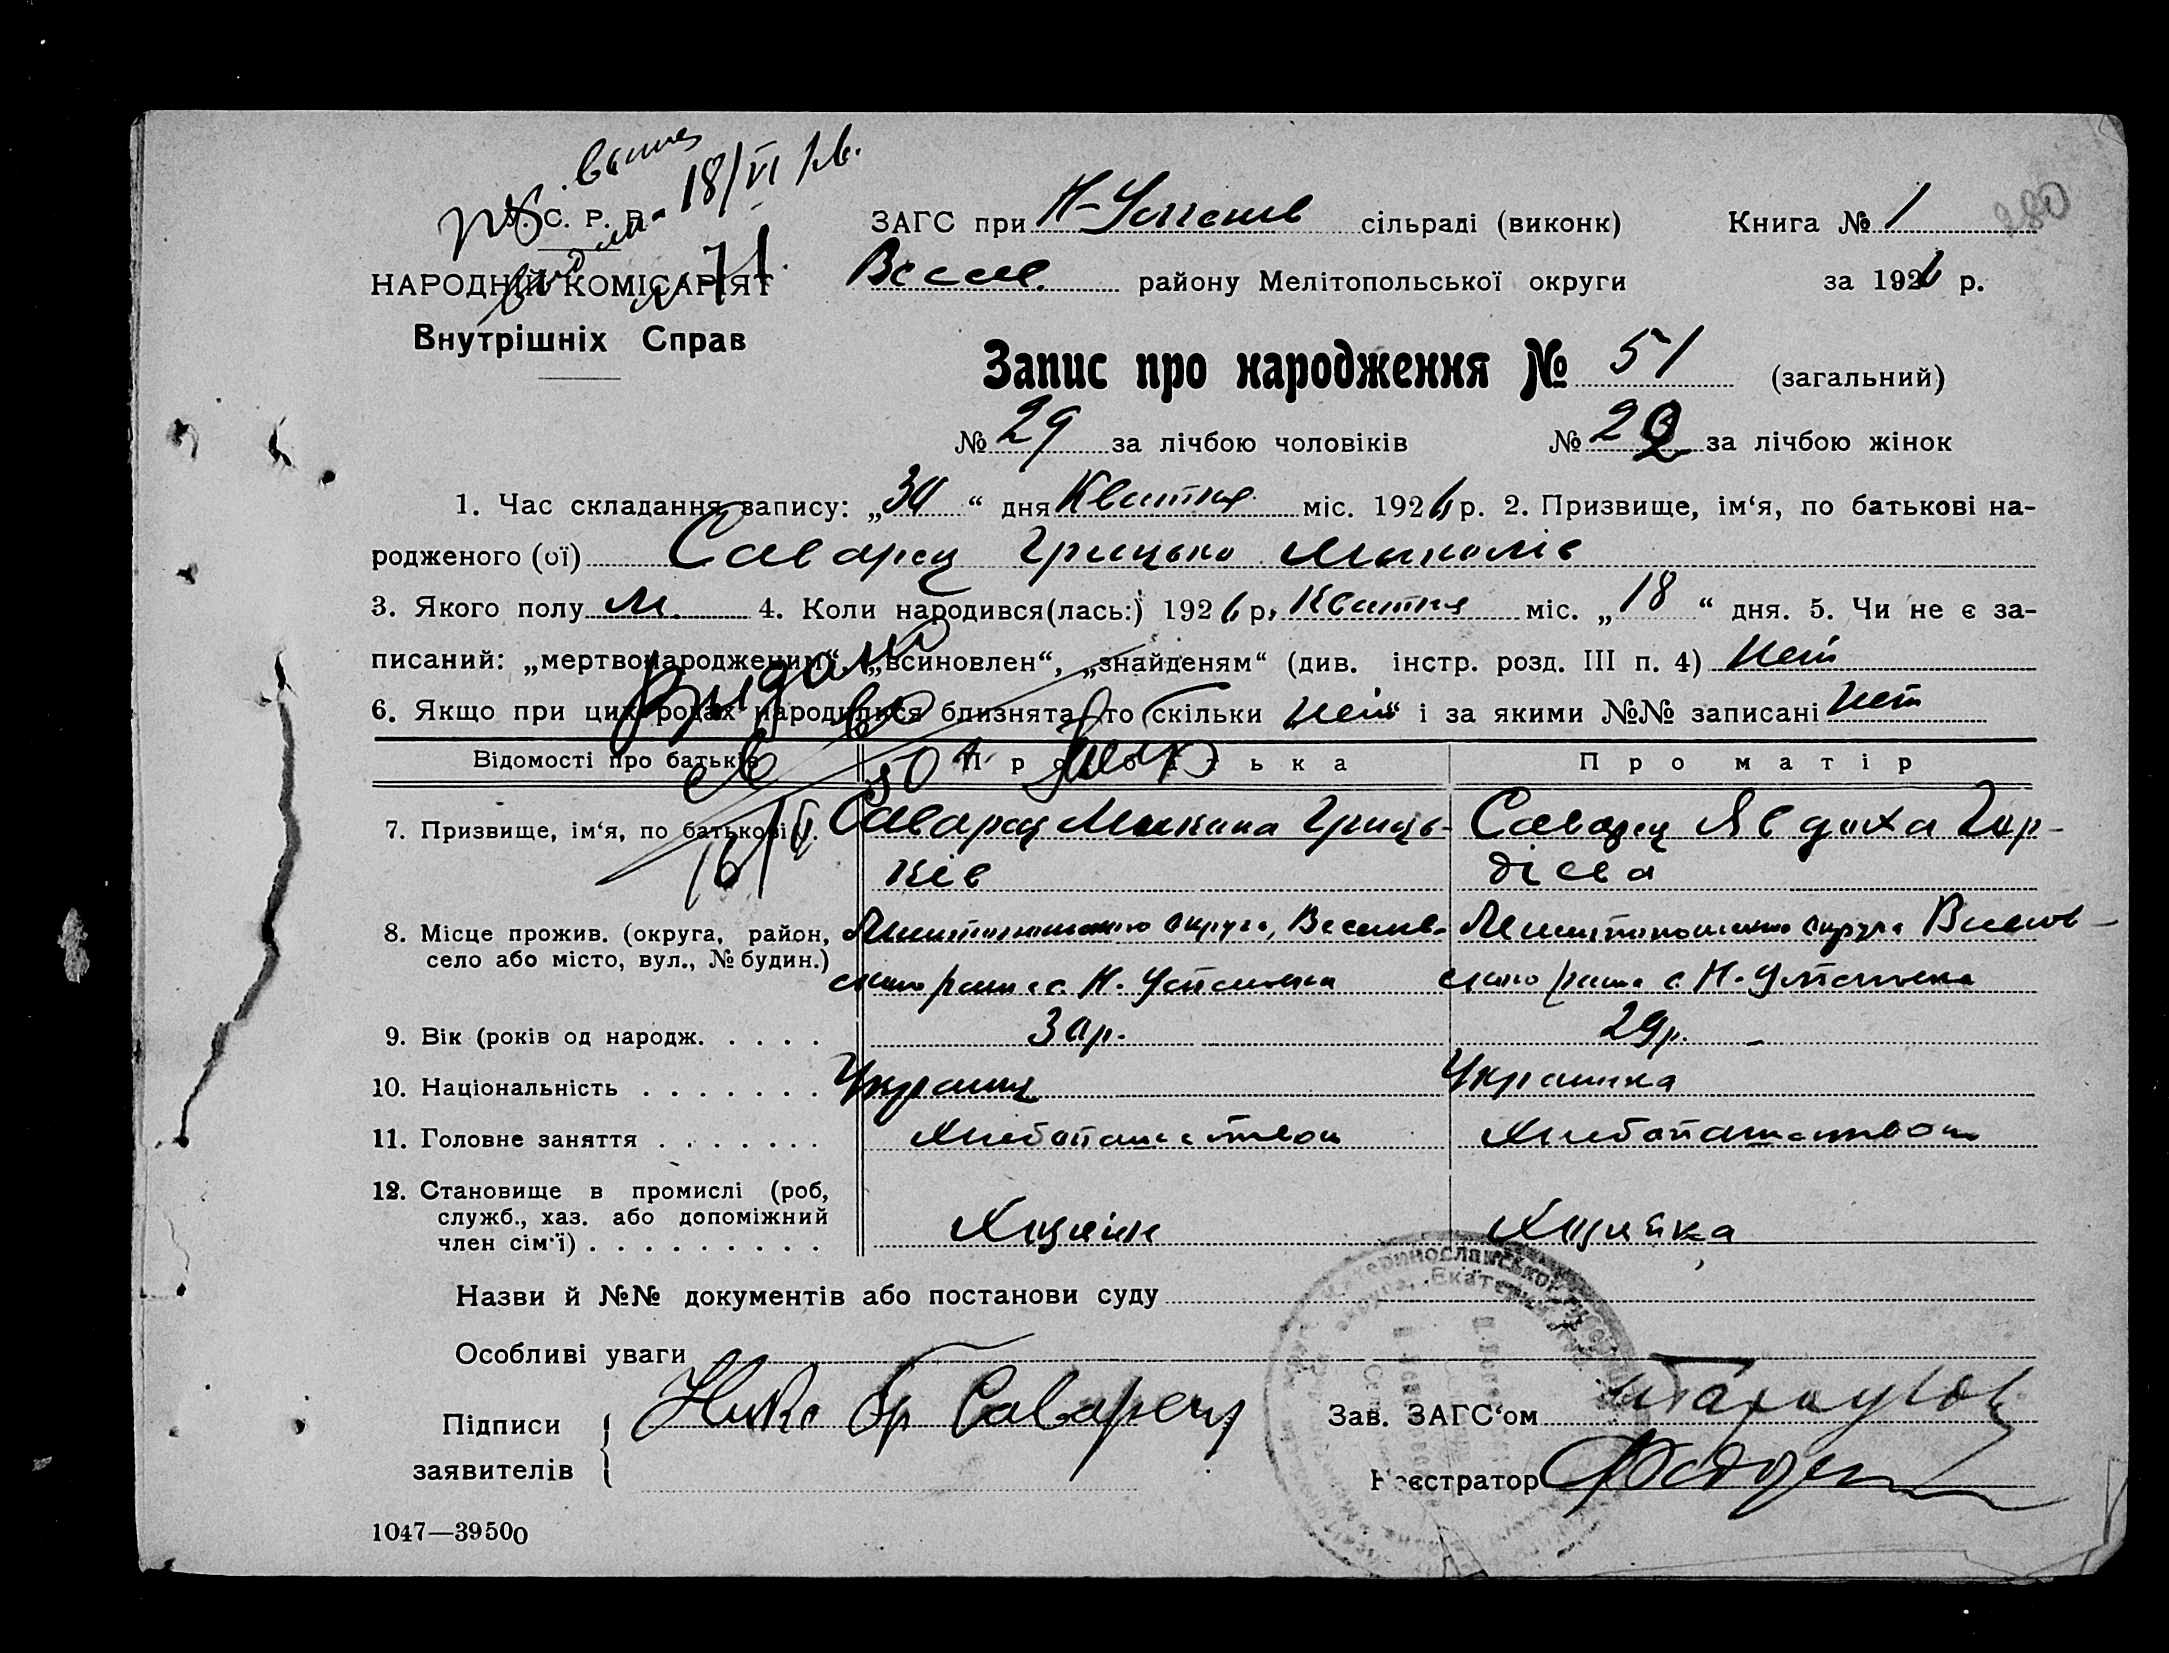 У. С. Р. Р.
18/VI
НАРОДНІЙ КОМІСАРІЯТ
№ 71.
Внутрішніх Справ
ЗАГС при Н-Успенів сільраді (виконк) Книга № 1
280
Весел. району Мелітопольської округи за 1926 р.
Запис про народження № 51 (загальний)
№ 29 за лічбою чоловіків № за лічбою жінок
1. Час складання запису: „30“ дня Квітня міс. 1926 р. 2. Призвище, ім‘я, по батькові на-
родженого (ої) Саварец Грицько Миколів
3. Якого полу М. 4. Коли народився(лась:) 1926 р. Квітня міс. „18“ дня. 5. Чи не є за-
писаний: „мертвонародженим“, „всиновлен“, „знайденям“ (див. інстр. розд. III п. 4) Нет
6. Якщо при цих родах народилися близнята, то скільки „Нет“ і за якими №№ записані Нет
Видано
Відомості про батьків Про батька Про матір
7. Призвище, ім‘я, по батькові Саварец Микола Гриць- Саварец Явдоха Гор-
ків дієва
8. Місце прожив. (округа, район, Мелітопольсько округа, Веселів- Мелітопольсько округа Веселів-
село або місто, вул., № будин.) ського рай с. Н. Успеновка ського рай с. Н. Успеновка
9. Вік (років од народж. 30 р. 29 р.
10. Національність Украинц Украинка
11. Головне заняття Хлебопашеством Хлебопашеством
12. Становище в промислі (роб,
служб., хаз. або допоміжний Хазяін Хазяйка
член сім‘ї)
Назви й №№ документів або постанови суду
Особливі уваги
Підписи Нико Гр Саварец Зав. ЗАГС‘ом
заявителів Реєстратор
1047—39500